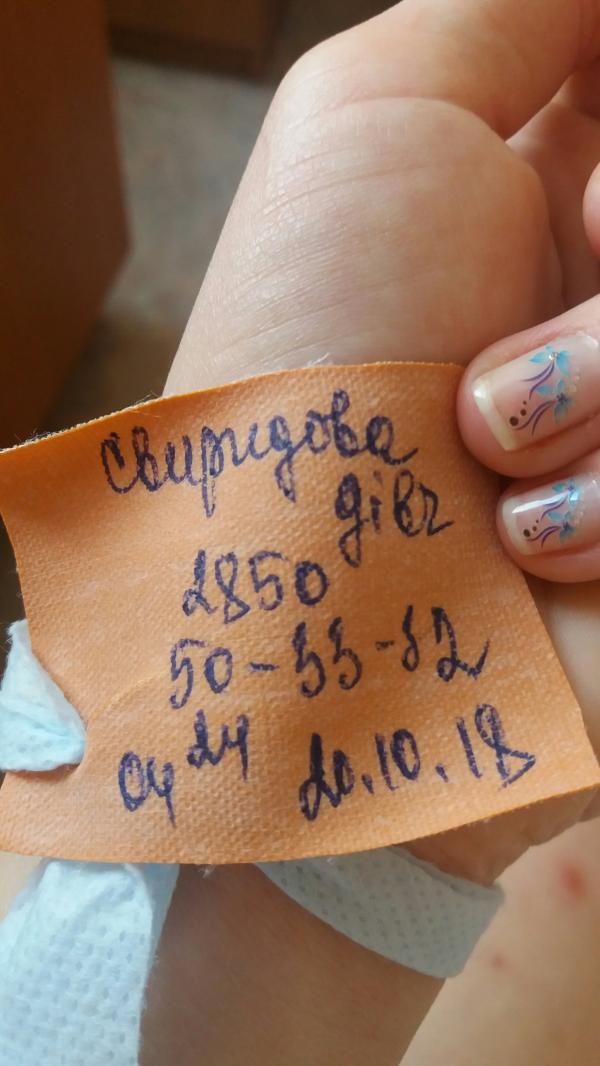 Свиридова
дівч
2850
50-33-32
04 24 20.10.18